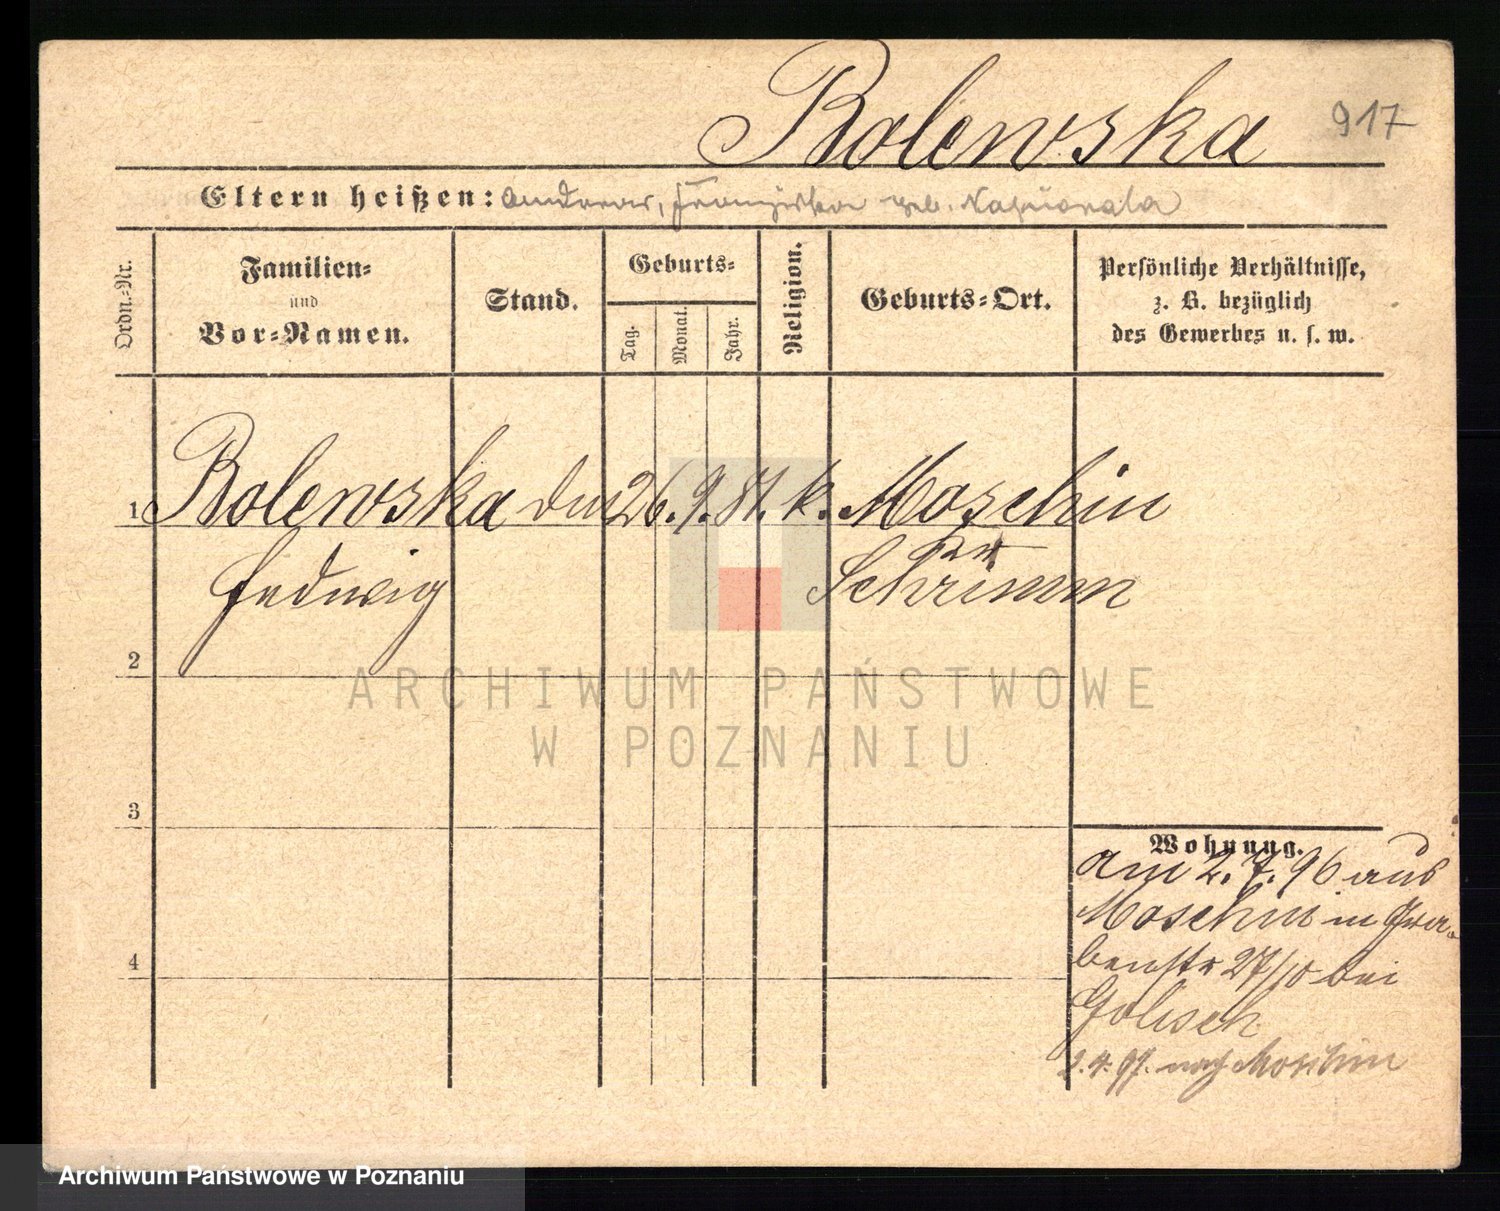 Bolewska 917
Eltern heißen: Andreas, Franziska geb.
Ordn.-Nr.
Familien-
und
Vor-Namen.
Stand.
Geburts-
Tag.
Monat.
Jahr.
Religion.
Geburts-Ort.
Persönliche Verhältnisse,
z. B. bezüglich
des Gewerbes u. s. w.
1 Bolewska 26. 9. 81. k. Moschin
Hedwig Schrimm
2
3
4
Wohnung.
am 2. 7. 96 aus
Moschin in Gra-
benstr 27/10 bei
Golisch
2. 4. 97. nach Moschin
ARCHIWUM PAŃSTWOWE
W POZNANIU
Archiwum Państwowe w Poznaniu